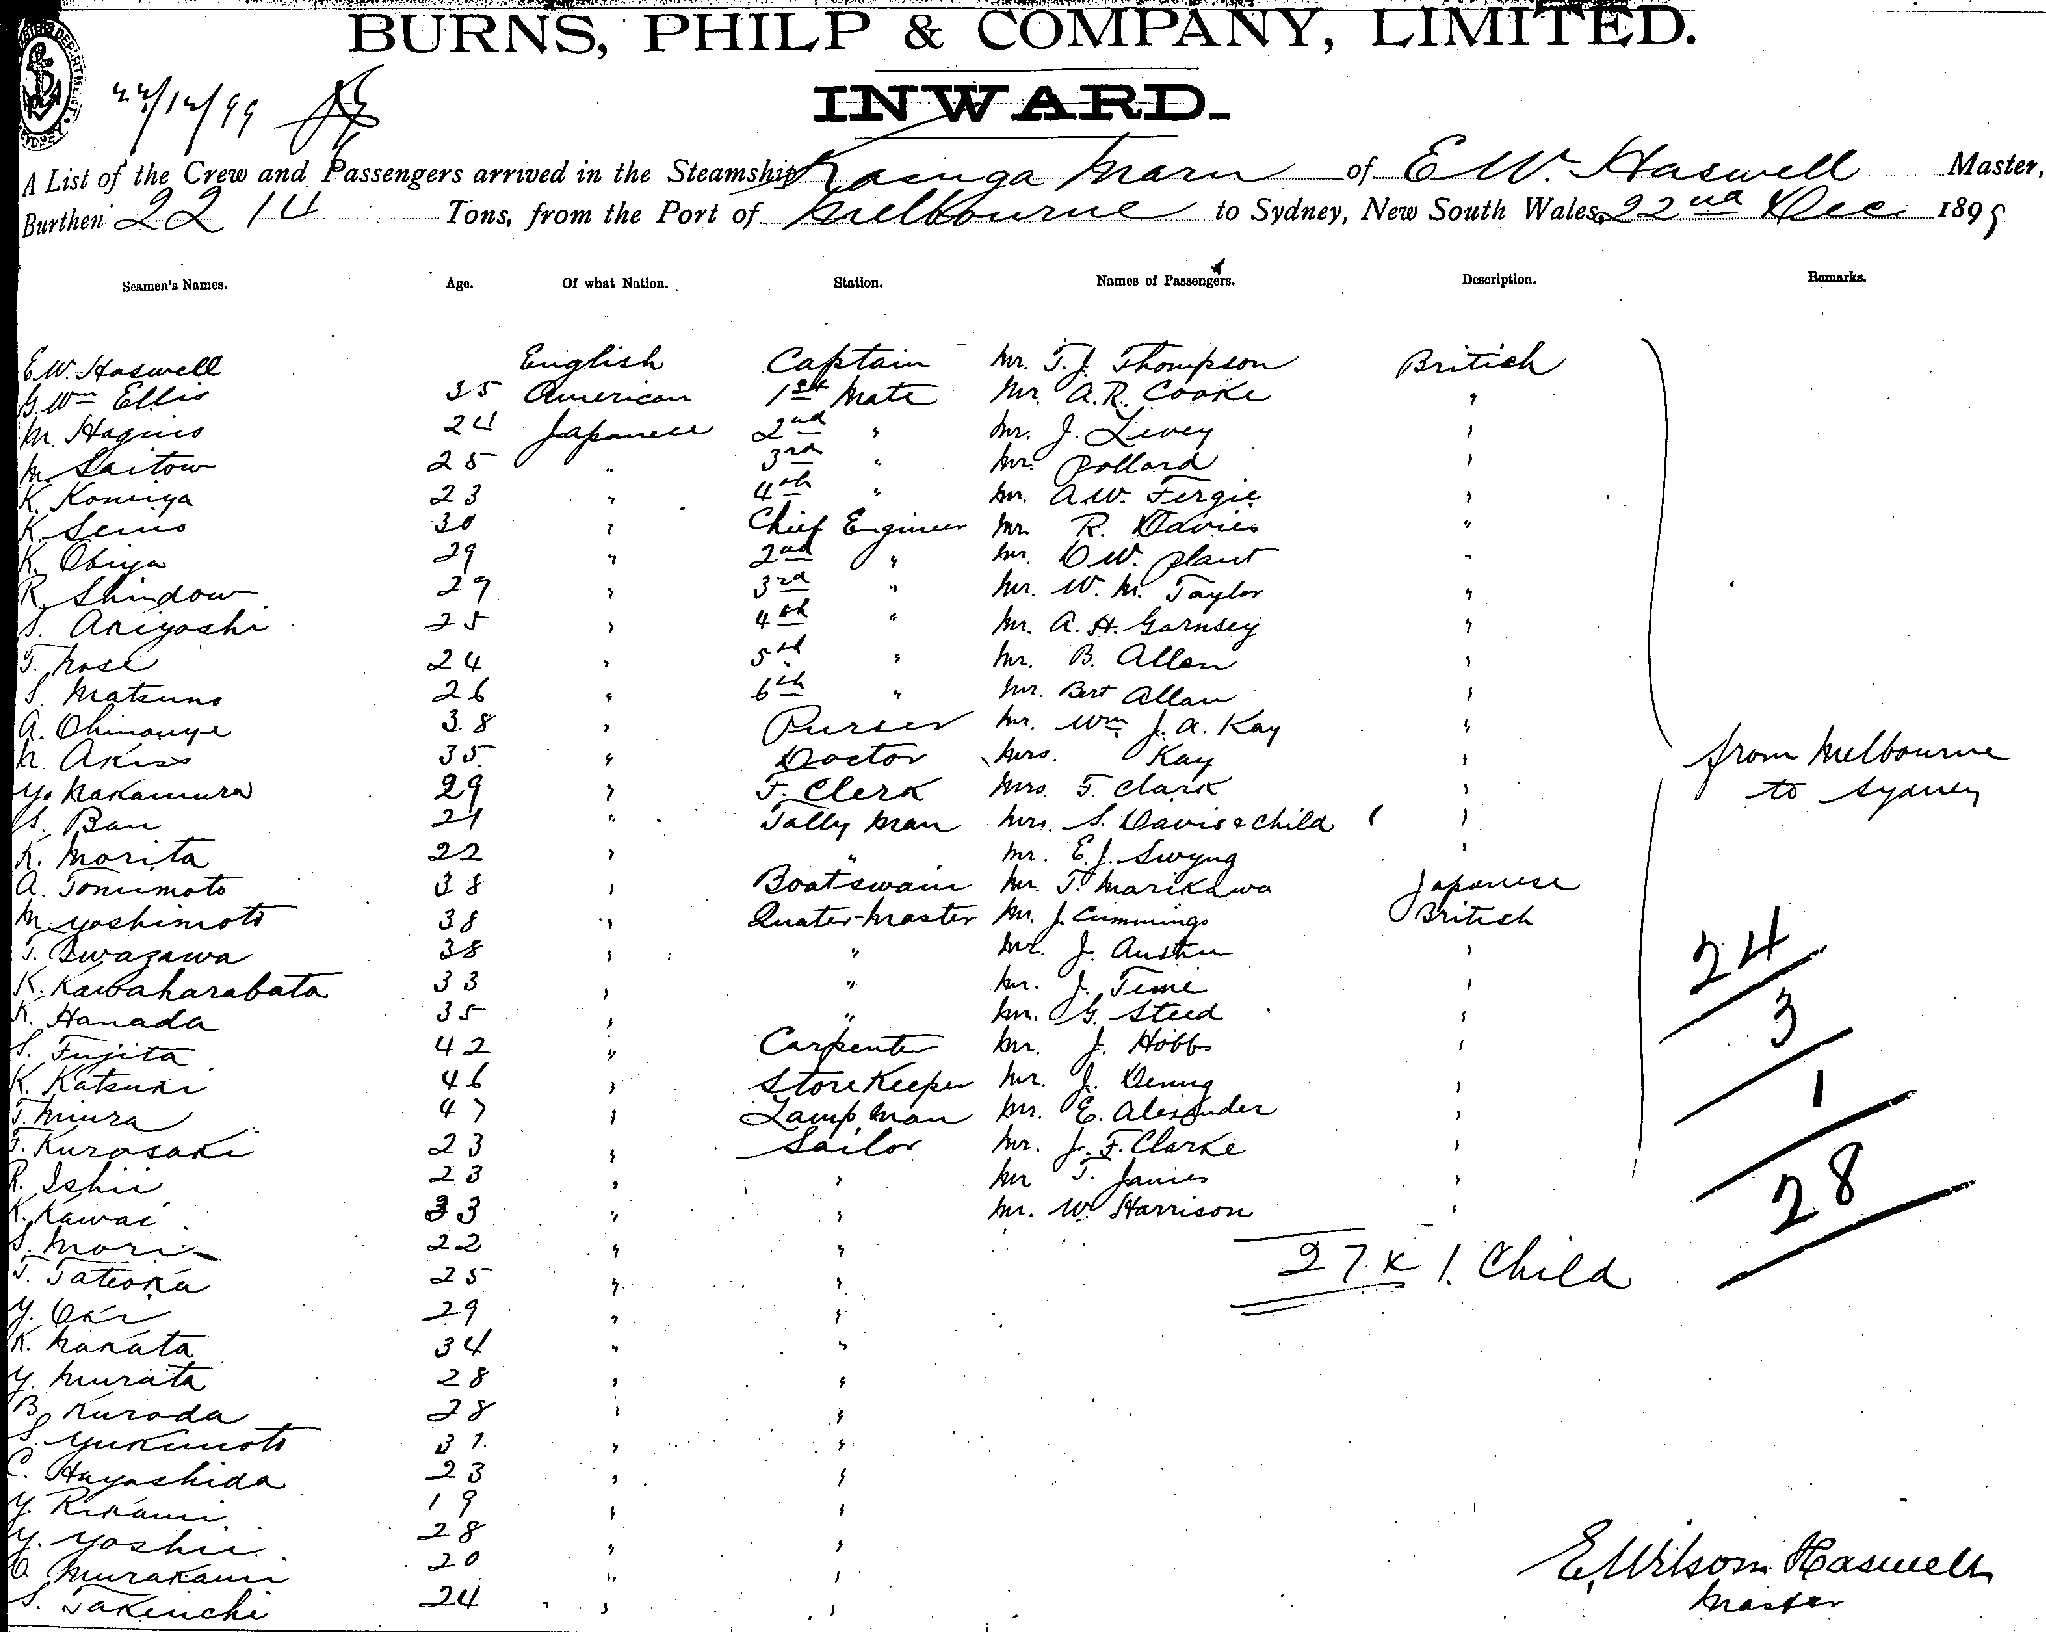 BURNS, PHILP & COMPANY, LIMITED.
INWARD.
22/12/99
A List of the Crew and Passengers arrived in the Steamship Kasuga Maru of E W. Haswell Master,
Burthen 2214 Tons, from the Port of Melbourne to Sydney, New South Wales, 22nd Dec. 1899
Seamen's Names. Age. Of what Nation. Station. Names of Passengers. Description. Remarks.
E W. Haswell English Captain Mr. T. J. Thompson British
G Wm Ellis 35 American 1st Mate Mr A. R. Cooke "
M. Hagino 24 Japanese 2nd " Mr. J. Levey "
M. Saitow 25 " 3rd " Mr. Pollard "
K. Komiya 23 " 4th " Mr. A W. Fergie "
K. Seino 30 " Chief Engineer Mr. R. Davies "
K. Obiya 29 " 2nd " Mr. O W. Plant "
R. Shindow 29 " 3rd " Mr. W. M. Taylor "
S. Ariyoshi 25 " 4th " Mr. A. H. Garnsey "
T. Nose 24 " 5th " Mr. B. Allen "
S. Matsuno 26 " 6th " Mr. Bert Allan "
A. Ohinouye 38 " Purser Mr. Wm J. A. Kay "
35 " Doctor Mrs. Kay "
Y. Nakamura 29 " F. Clerk Mrs. F. Clark "
S. Ban 21 " Tally Man Mrs. S. Davis & Child "
K. Morita 22 " " Mr. E. J. Swyng "
A. Tomimoto 38 " Boatswain Mr T. Marikawa Japanese
M. Yoshimoto 38 " Quater-Master Mr. J. Cummings British
T. Iwazawa 38 " " Mr. J. Austin "
K. Kawaharabata 33 " " Mr. J. Time "
K. Hanada 35 " " Mr. G. Steed "
S. Fujita 42 " Carpenter Mr. J. Hobbs "
K. Katsuki 46 " Store Keeper Mr. J. Denng "
T. Miura 47 " Lamp Man Mr. E. Alexander "
T. Kurosaki 23 " Sailor Mr. J. F. Clarke "
R. Ishii 23 " " Mr T. James "
K. Kawai 33 " " Mr. W. Harrison "
S. Mori 22 " "
T. Tateoka 25 " "
Y. Oki 29 " "
K. Nakata 34 " "
Y. Murata 28 " "
B. Kuroda 28 " "
S. Yukimoto 31 " "
C. Hayashida 23 " "
Y. Rikami 19 " "
Y. Yoshii 28 " "
O. Murakami 20 " "
S. Takeuchi 24 " "
from Melbourne
to Sydney
24
3
1
28
27 x 1. Child
E. Wilson Haswell
Master